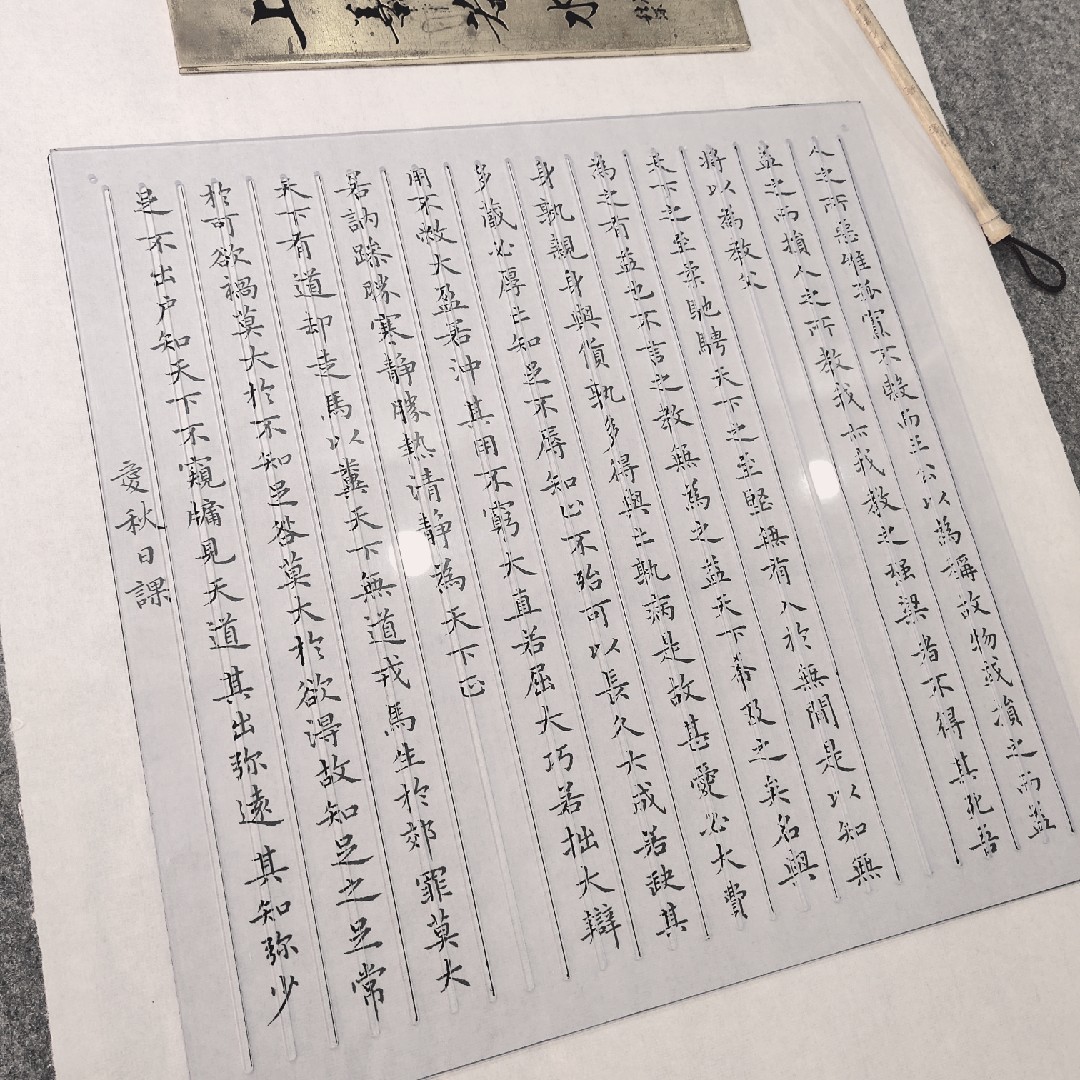 上善若水
人之所惡唯孤寡不穀而王公以為稱故物或損之而益
益之而損人之所教我亦我教之强梁者不得其死吾
將以為教父
天下之至柔馳騁天下之至堅無有入於無間是以知無
為之有益也不言之教無為之益天下希及之矣名與
身孰親身與貨孰多得與亡孰病是故甚愛必大費
多藏必厚亡知足不辱知止不殆可以長久大成若缺其
用不敝大盈若沖其用不窮大直若屈大巧若拙大辯
若訥躁勝寒静勝熱清静為天下正
天下有道却走馬以糞天下無道戎馬生於郊罪莫大
於可欲禍莫大於不知足咎莫大於欲得故知足之足常
足不出户知天下不窺牖見天道其出弥遠其知弥少
愛秋日課